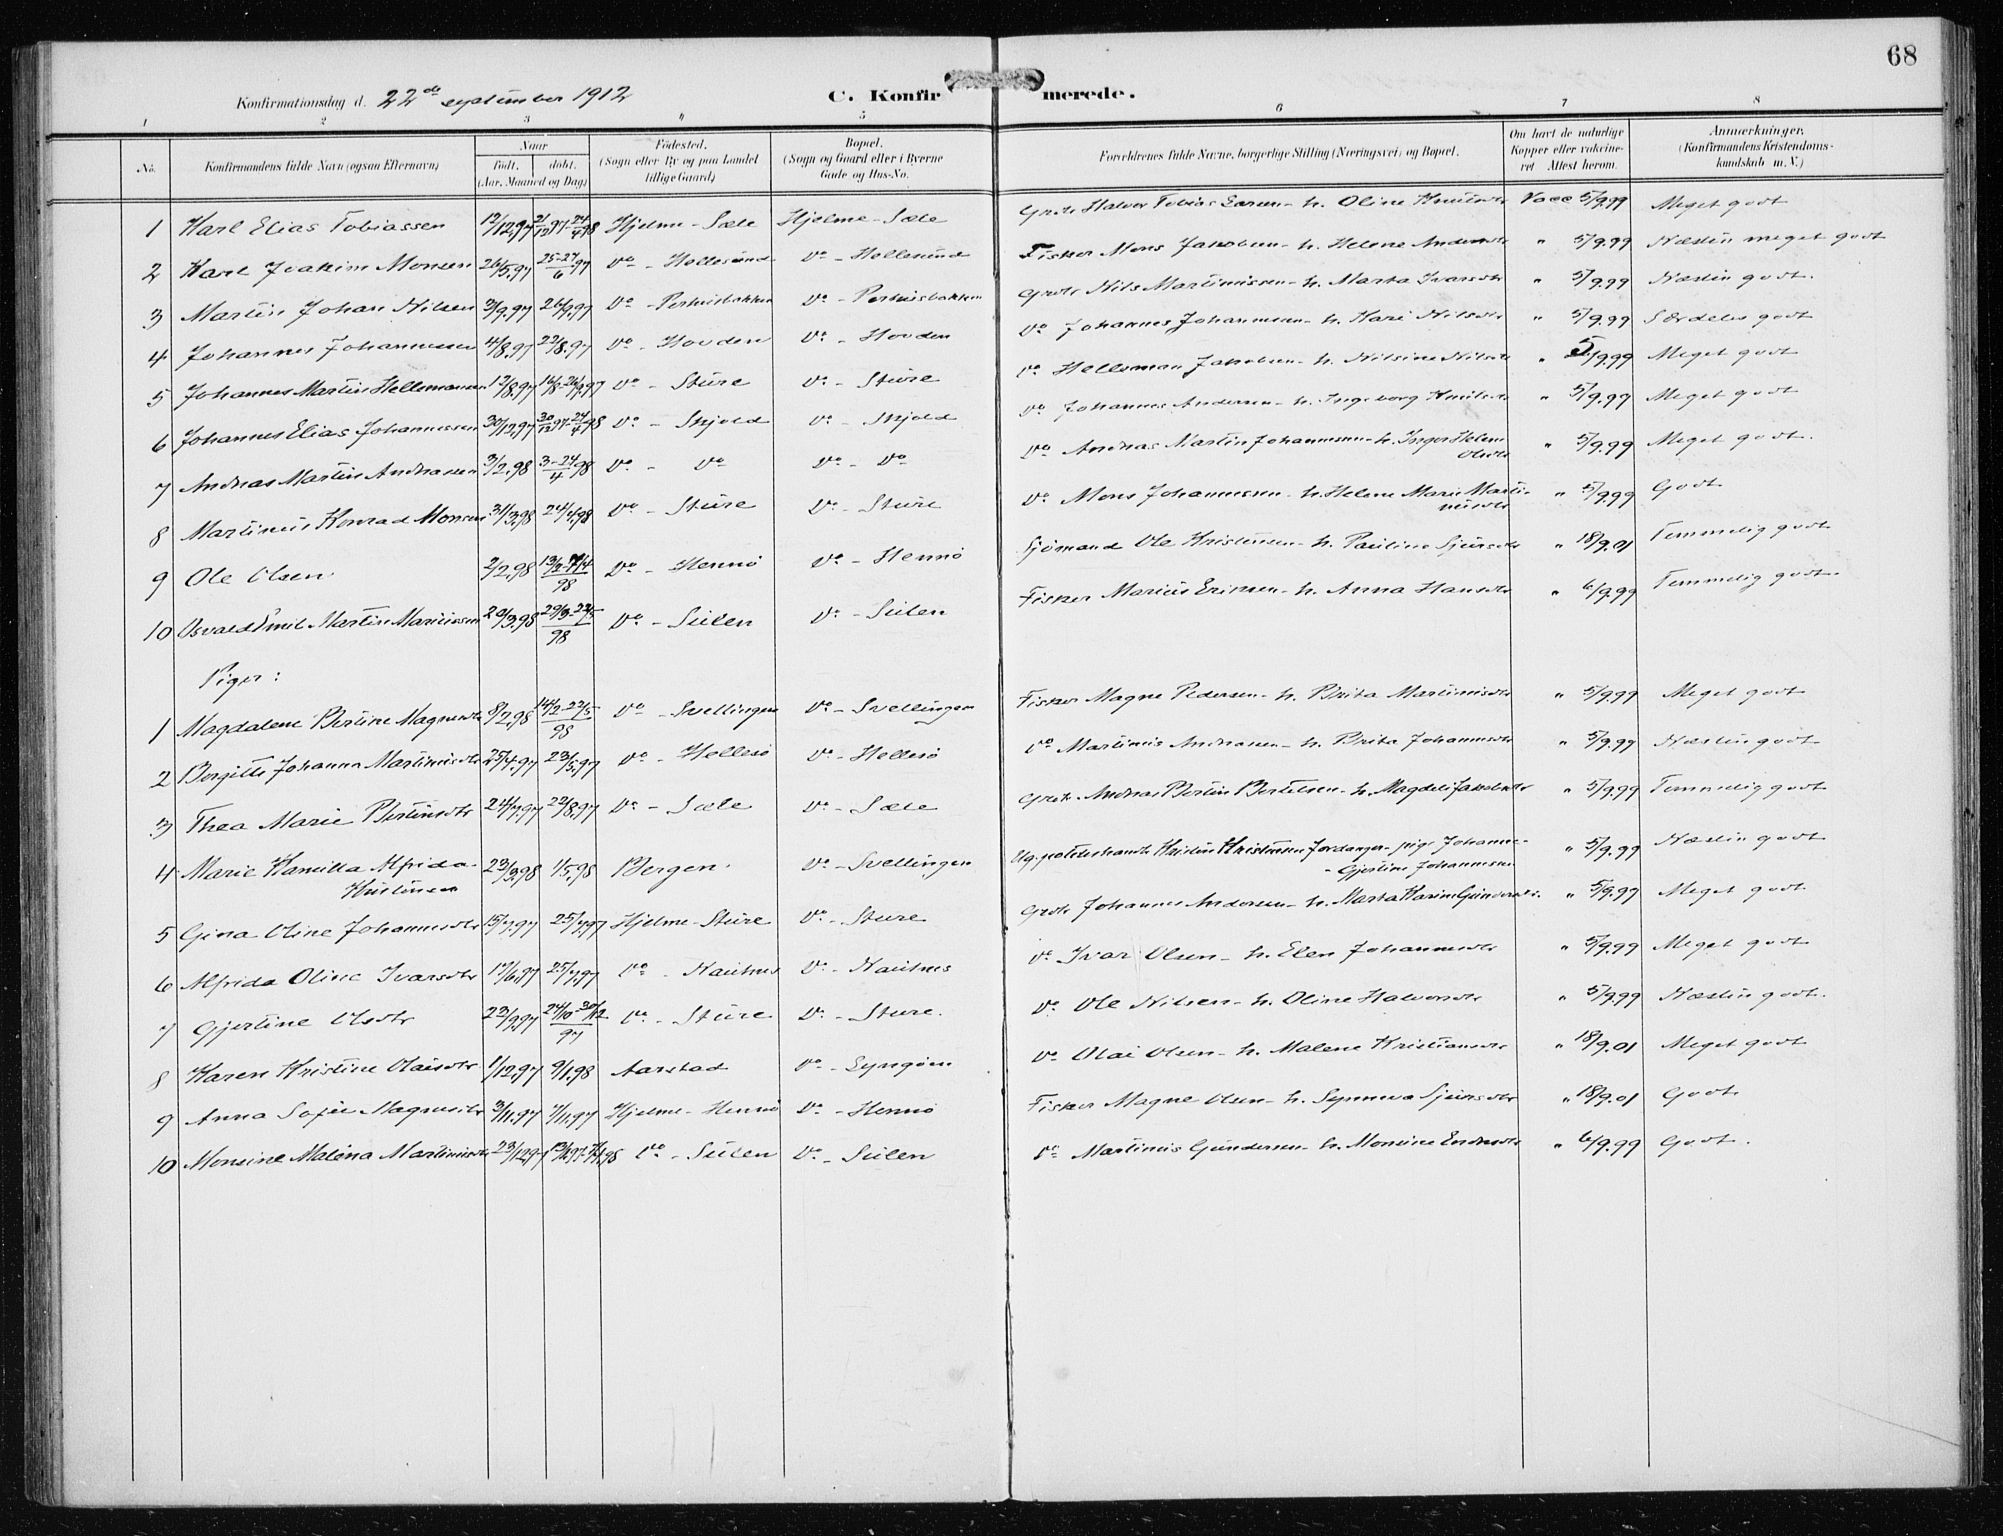 68
Konfirmationsdag d. 22de september 1912 C. Konfirmerede.
1 2 3 4 5 6 7 8
No. Konfirmandens fulde Navn (ogsaa Efternavn)
Naar Født. døbt. (Aar, Maaned og Dag)
Fødested. (Sogn eller By og paa Landet tillige Gaard)
Bopæl. (Sogn og Gaard eller i Byerne Gade og Hus-No.
Forældrenes fulde Navne, borgerlige Stilling (Næringsvei) og Bopæl.
Om havt de naturlige Kopper eller vaccineret Attest herom.
Anmærkninger. (Konfirmandens Kristendomskundskab m. V.)
1 Karl Elias Tobiassen 12/12.97 21/12 97-24/4 98 Hjelme - Sæle Hjelme - Sæle Grdbr Halvor Tobias - h. Oline Knutsdtr Vacc 5/9.99 Meget godt
2 Karl Joakim Monsen 26/5.97 25-27/6 97 Do - Hellesund Do - Hellesund Fisker Mons Jakobsen - h. Helene Andersdtr " 5/9.99 Næsten meget godt
3 Martin Johan Nilsen 3/9.97 26/9.97 Do Do Grdbr Nils Martinussen - h. Marta Ivarsdtr " 5/9.99 Næsten godt.
4 Johannes Johannessen 4/8.97 22/8.97 Do - Hovden Do - Hovden Do Johannes Johannessen - h. Kari Nilsdtr " 5/9.99 Særdeles godt
5 Johannes Martin Hellemansen 12/8.97 Do - Sture Do - Sture Do Helleman Jakobsen - h. Nilsine Nilsdtr " 5/9.99 Meget godt
6 Johannes Elias Johannessen 30/12.97 30/12 97-24/4 98 Do - Skjold Do - Skjold Do Johannes Andersen - h. Ingeborg Knutsdtr " 5/9.99 Meget godt
7 Andreas Martin Andreassen 3/2.98 3-24/4 98 Do - Do Do - Do Do Andreas Martin Johannessen - h. Inger Helene
Olsdtr " 5/9.99 Meget godt.
8 Martinus Konrad Monsen 31/3.98 24/4.98 Do - Sture Do - Sture Do Mons Johannessen - h. Helene Marie Marti-
nusdtr " 5/9.99 Godt
9 Ole Olsen 2/2.98 Do - Hennø Do - Hennø Sjømand Ole Kristensen - h. Pauline Sjursdtr " 18/9.01 Temmelig godt
10 Osvald Emil Martin Mariussen Do - Seilen Do - Seilen Fisker Marius Eriksen - h. Anna Hansdtr " 6/9.99 Temmelig godt.
Piger:
1 Magdalene Bertine Magnusdtr 8/2.98 14/2-22/5 98 Do - Svellingen Do - Svellingen Fisker Magne Pedersen - h. Brita Martinusdtr " 5/9.99 Meget godt
2 Bergitte Johanna Martinusdtr 25/4.97 23/5.97 Do - Hellesø Do - Hellesø Do Martinus Andreassen - h. Brita Johannesdtr " 5/9.99 Næsten godt
3 Thea Marie Bertinsdtr 24/7.97 22/8.97 Do - Sæle Do - Sæle Grdbr. Andreas Bertin Bertelsen - h. Magdeli Jakobsdtr " 5/9.99 Temmelig godt
4 Marie Kamilla Alfrida
Kristensen 23/3.98 1/5.98 Bergen. Do - Svellingen Kristen Kristensen - pige Johanne
Gjertine Johannessen " 5/9.99 Næsten godt
5 Gina Oline Johannesdtr 15/7.97 25/7.97 Hjelme - Sture Do - Sture Grdbr Johannes Andersen - h. Marta Karine Gundersdtr. " 5/9.99 Meget godt
6 Alfrida Oline Ivarsdtr 17/6.97 25/7.97 Do - Nautnes Do - Nautnes Do Ivar Olsen - h. Elen Johannesdtr " 5/9.99 Meget godt
7 Gjertine Olsdtr 23/9.97 24/10-30/12 97 Do - Sture Do - Sture. Do Ole Nilsen - h. Oline Halvorsdtr " 5/9.99 Næsten godt.
8 Karen Kristine Olaisdtr 1/12.97 9/1.98 Aarstad Do - Syngøen Do Olai Olsen - h. Malene Kristiansdtr " 18/9.01 Meget godt
9 Anna Sofie Magnusdtr 3/11.97 7/11.97 Hjelme - Hennø Do - Hennø Fisker Magne Olsen - h. Synneva Sjursdtr " 18/9.01 Godt.
10 Monsine Malena Martinusdtr 23/12.97 Do - Seilen Do - Seilen Do Martinus Gundersen - h. Monsine Endresdtr " 6/9.99 Godt.